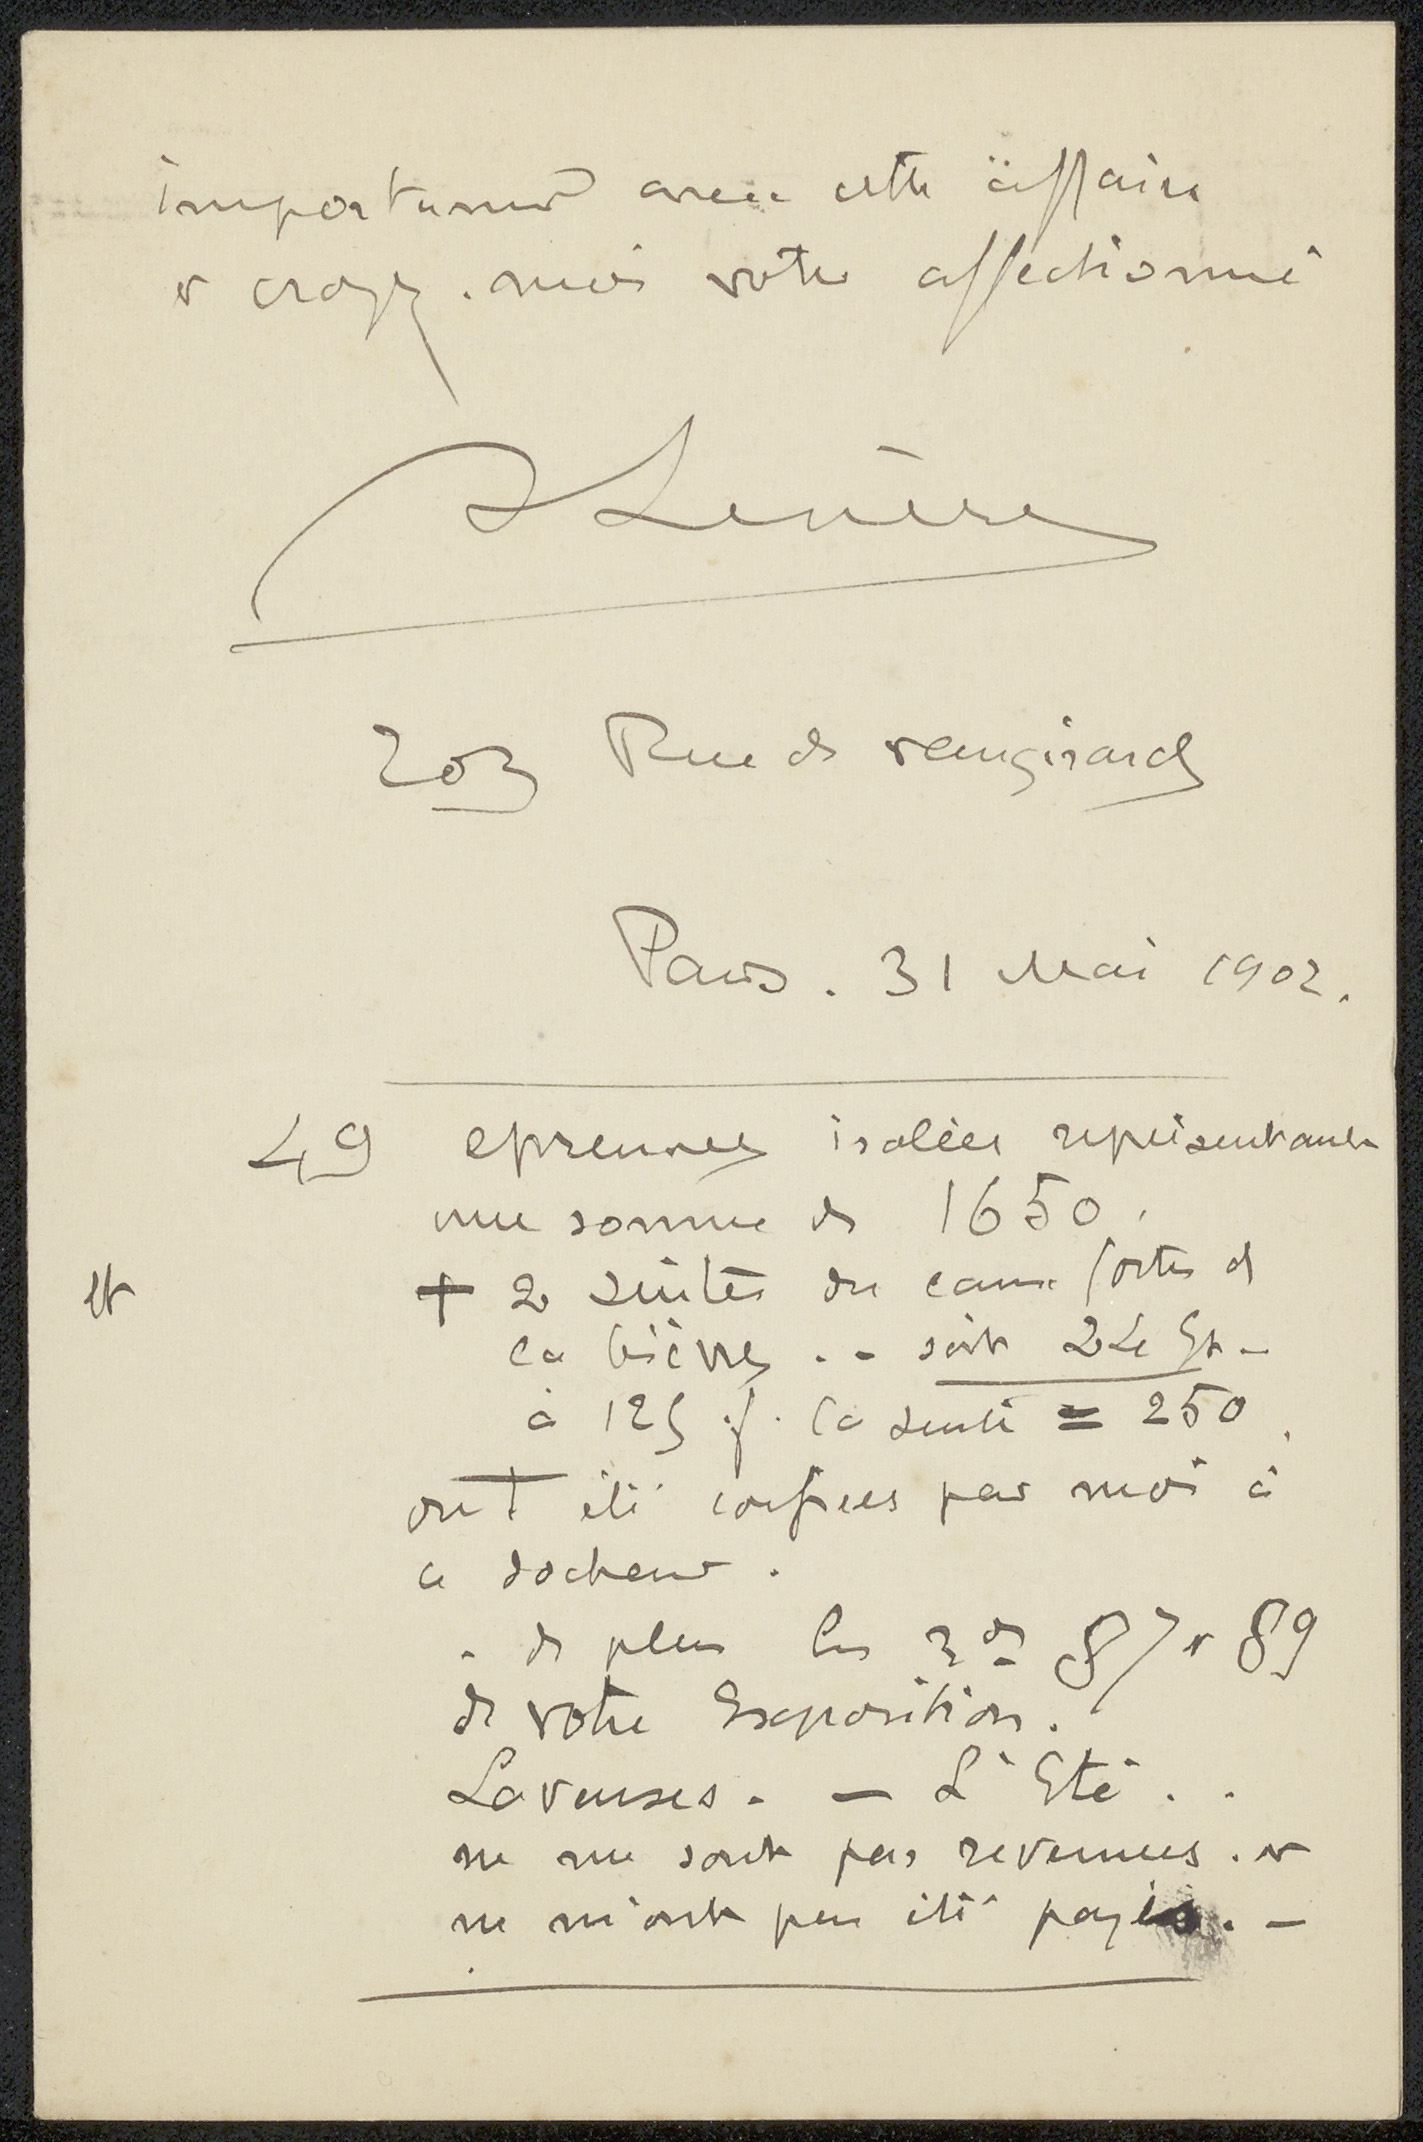 importuner avec cette affaire
et croyez-moi votre affectionné
ALepère
203 Rue de vaugirard
Paris. 31 Mai 1902.
49 epreuves isolées représentant
une somme de 1650.
et + 2 suites des eaux fortes de
la bièvre .- soit 24 Et -
à 125 f. la suite = 250.
ont été confiées par moi à
ce docteur.
- de plus les nos 87 et 89
de votre Exposition.
Laveuses. - L'Eté..
ne me sont pas revenues. et
ne m'ont pas été payés. -